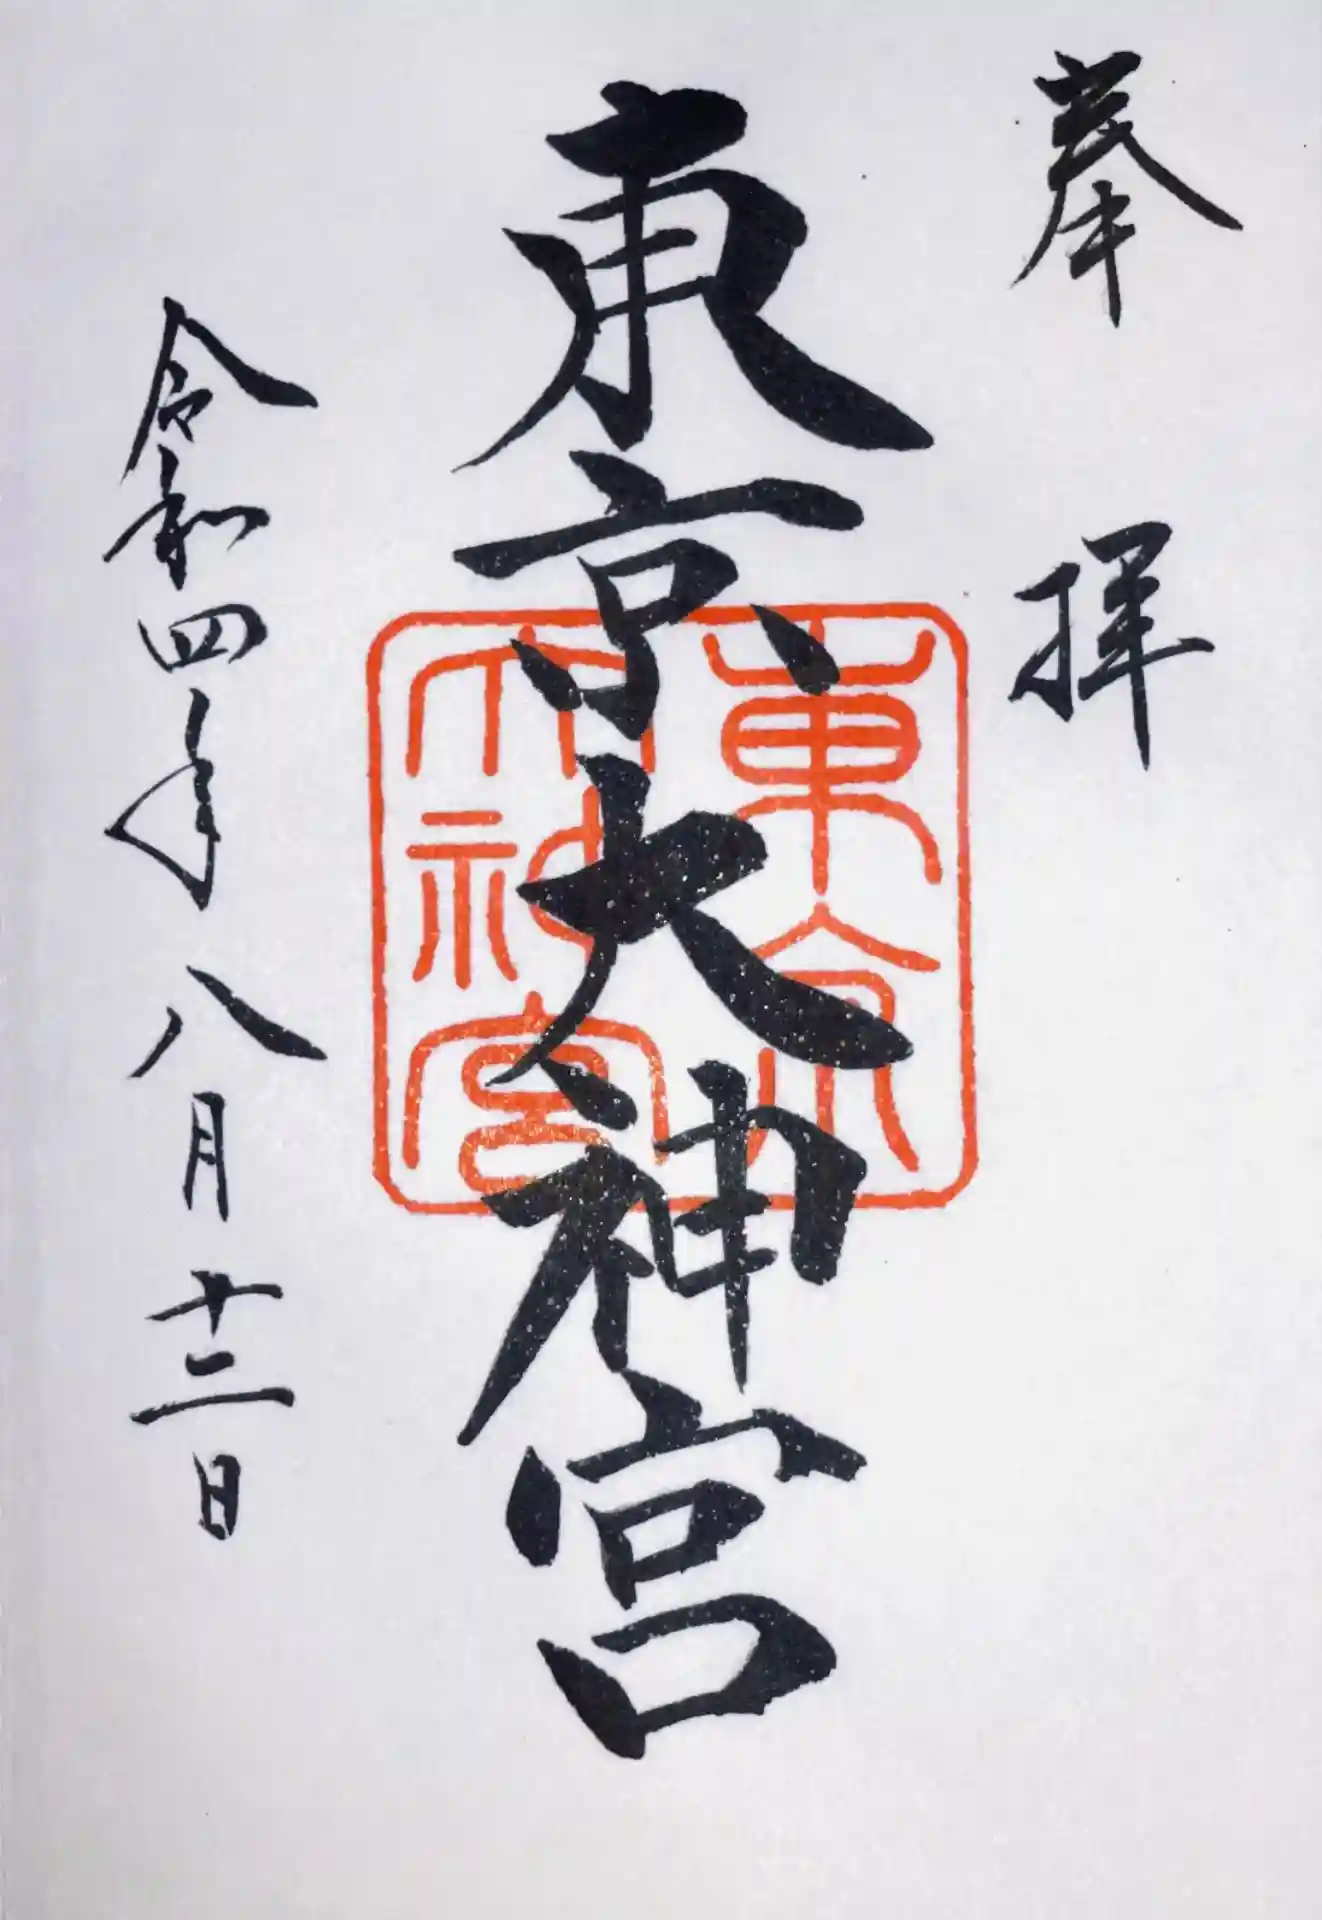 奉拝
東京大神宮
東京
大神宮
令和四年八月十二日